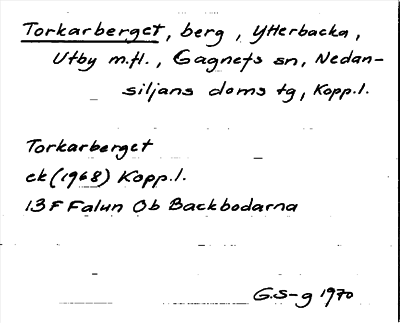 Torkarberget, berg, Ytterbacka,
Utby m.fl., Gagnefs sn, Nedan-
siljans doms tg, Kopp.l.
Torkarberget
ek (1968) Kopp.l.
13 F Falun Ob Backbodarna
G.S-g 1970